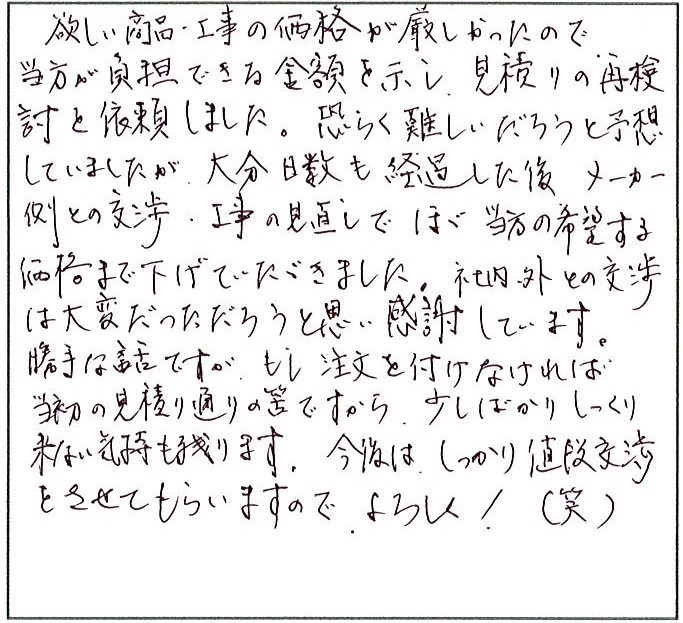 欲しい商品・工事の価格が厳しかったので
当方が負担できる金額を示し、見積りの再検
討を依頼しました。恐らく難しいだろうと予想
していましたが、大分日数も経過した後、メーカー
側との交渉・工事の見直しでほぼ当方の希望する
価格まで下げていただきました。社内外との交渉
は大変だっただろうと思い感謝しています。
勝手な話ですが、もし注文を付けなければ
当初の見積り通りの筈ですから、少しばかりしっくり
来ない気持も残ります。今後は、しっかり値段交渉
をさせてもらいますので、よろしく!(笑)